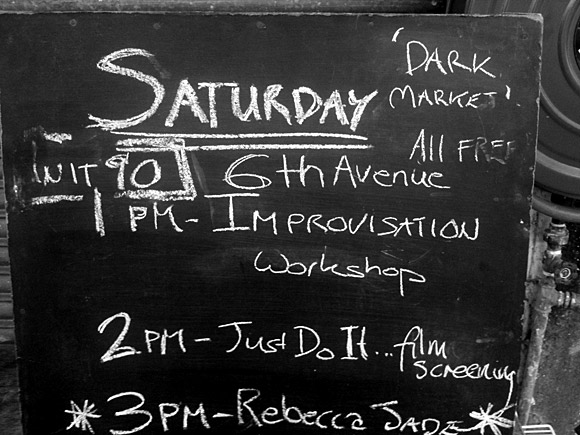 'DARK
MARKET'
SATURDAY
All FREE
UNIT 90 6th Avenue
1 PM - IMPROVISATION
Workshop
2 PM - Just Do It... film
screening
* 3 PM - Rebecca JADE *